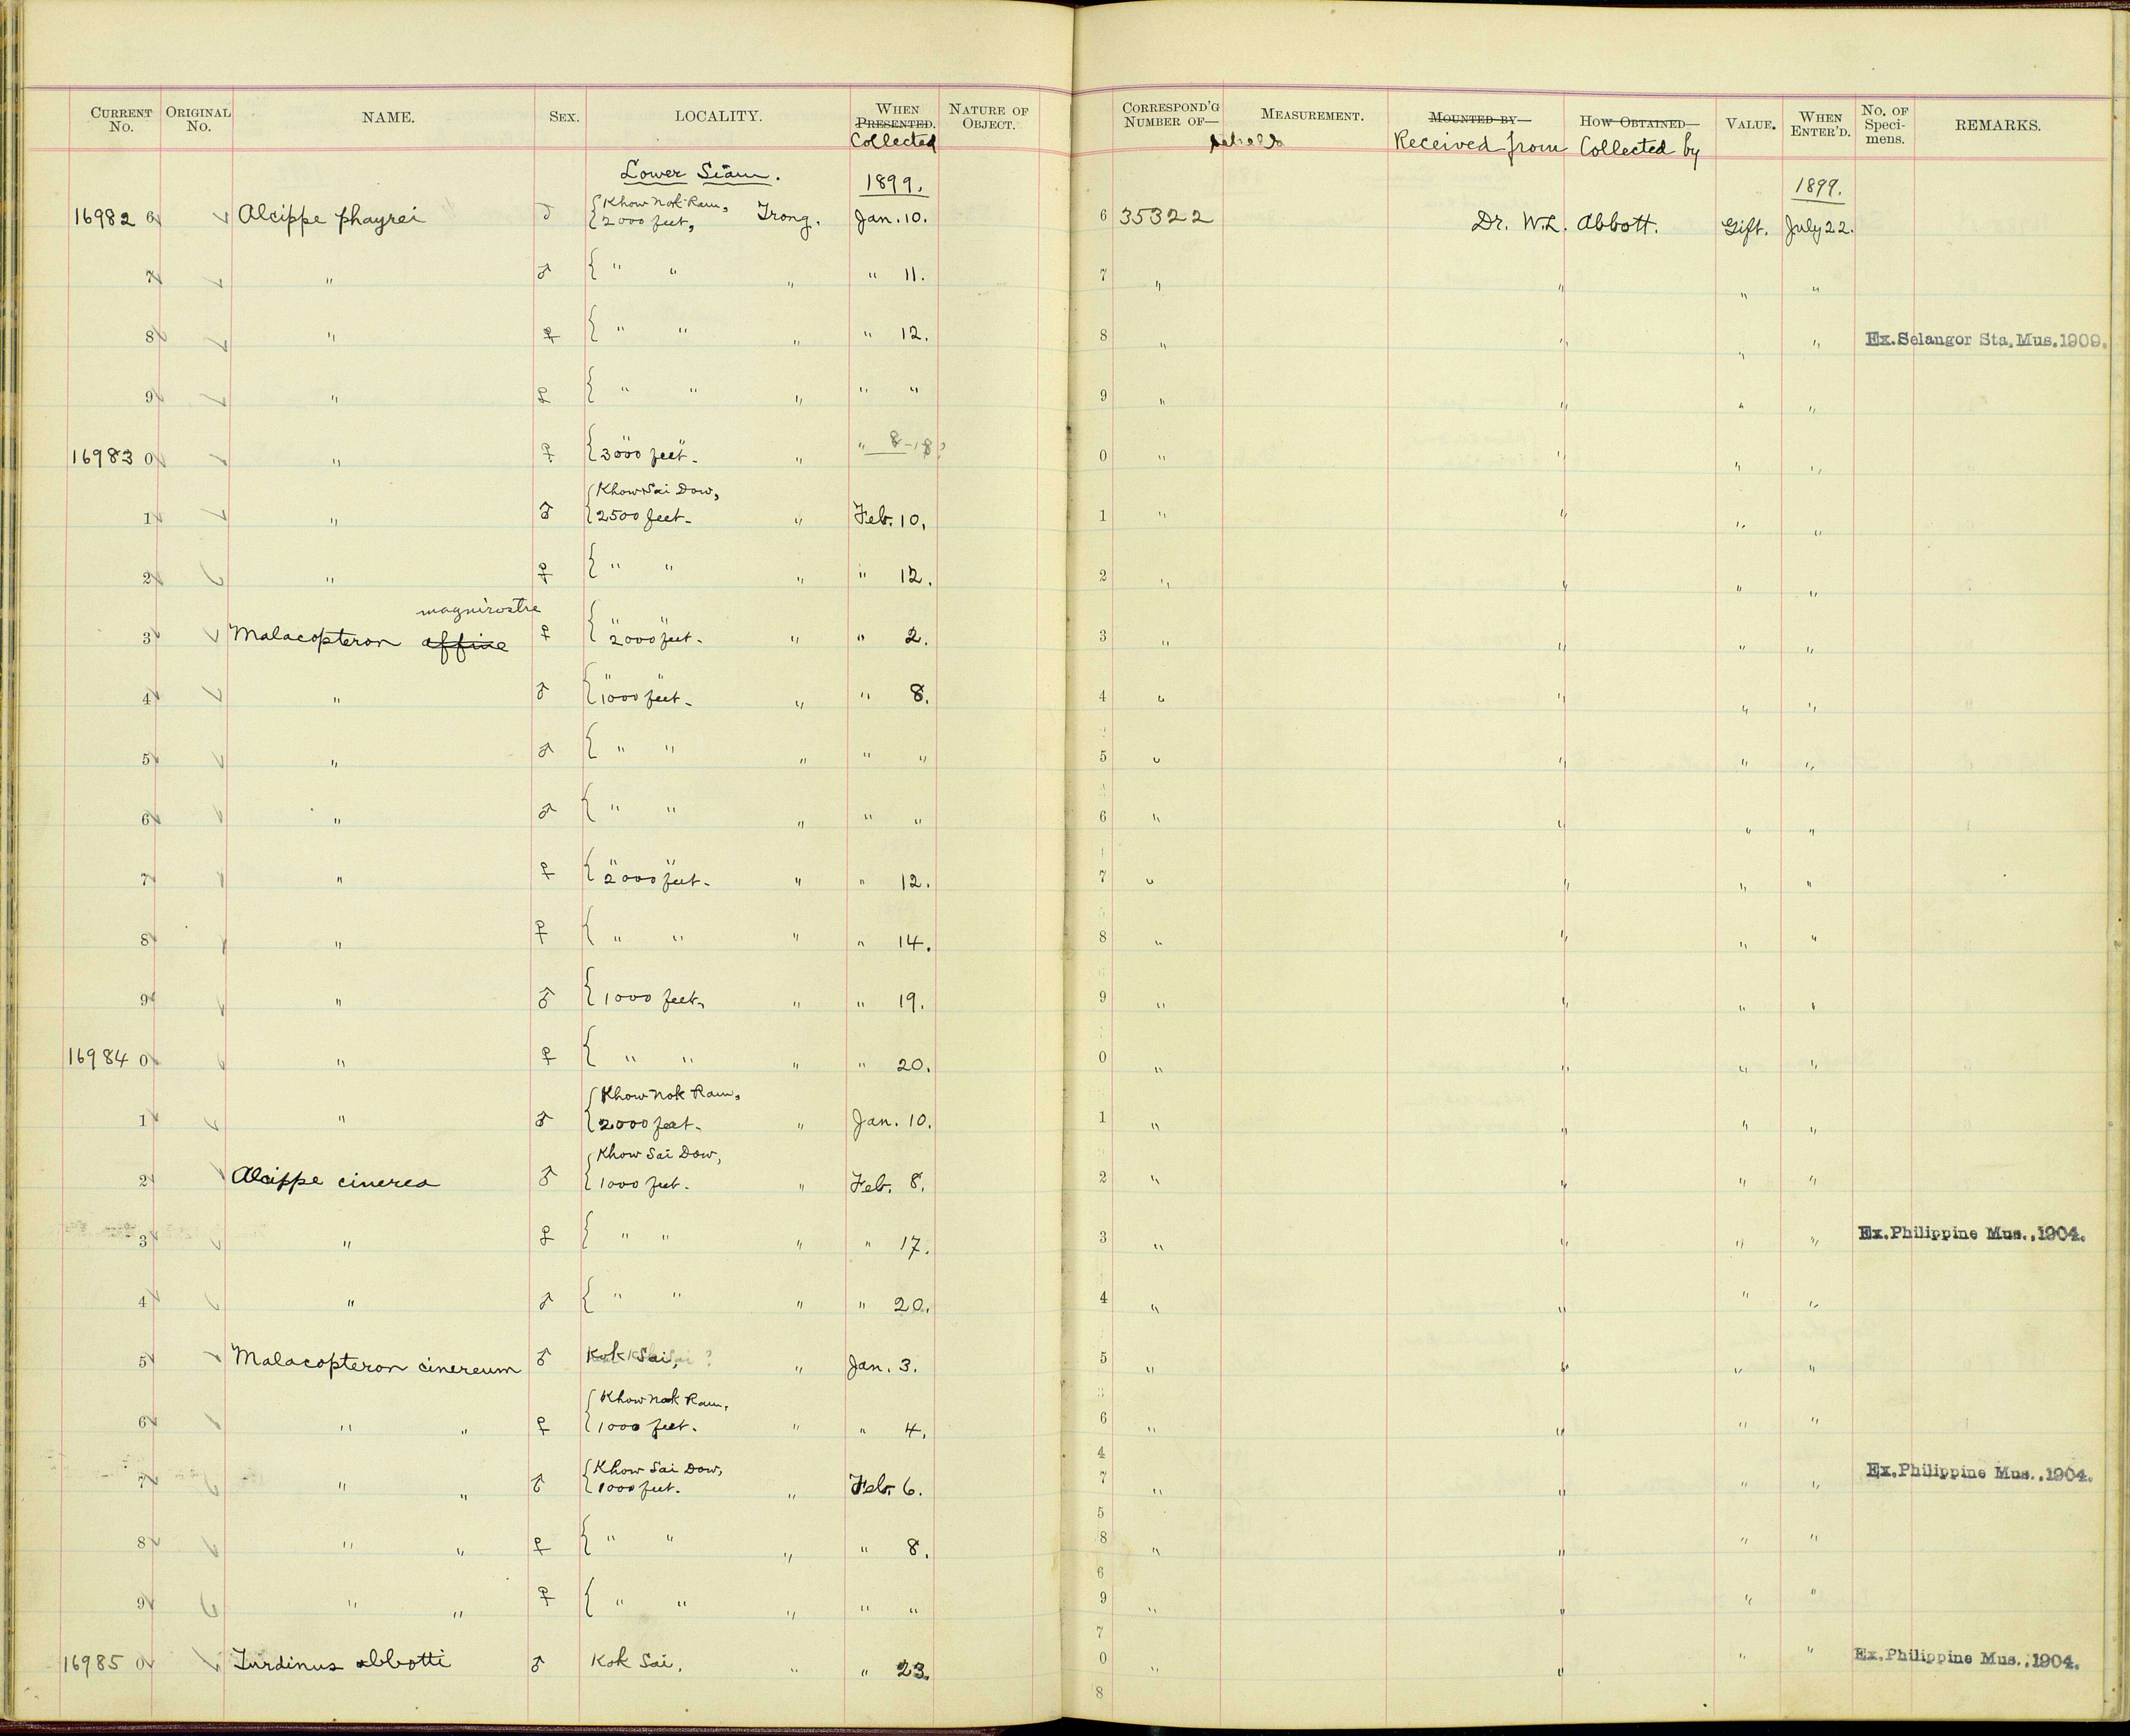 CURRENT No. ORIGINAL No. NAME. SEX. LOCALITY. WHEN PRESENTED. Collected NATURE OF OBJECT. CORRESPOND'G NUMBER OF— MEASUREMENT. MOUNTED BY— Received from HOW OBTAINED— Collected by VALUE. WHEN ENTER'D. No. OF Speci-mens. REMARKS.
Lower Siam. 1899. 1899.
16982 6 Alcippe phayrei ♂ Khow Nok Ram, 2000 feet, Trong. Jan. 10. 6 35322 Dr. W.L. Abbott. Gift. July 22.
7 " ♂ " " " " 11. 7 " " " "
8 " ♀ " " " " 12. 8 " " " " Ex. Selangor Sta. Mus. 1909.
9 " ♀ " " " " " 9 " " " "
16983 0 " ♀ " " 3000 feet. " " 8-18? 0 " " " "
1 " ♂ Khow Sai Dow, 2500 feet. " Feb. 10. 1 " " " "
2 " ♀ " " " " 12. 2 " " " "
magnirostre
3 Malacopteron affine ♀ " " 2000 feet. " " 2. 3 " " " "
4 " ♂ " " 1000 feet. " " 8. 4 " " " "
5 " ♂ " " " " " 5 " " " "
6 " ♂ " " " " " 6 " " " "
7 " ♀ " " 2000 feet. " " 12. 7 " " " "
8 " ♀ " " " " 14. 8 " " " "
9 " ♂ 1000 feet. " " 19. 9 " " " "
16984 0 " ♀ " " " " 20. 0 " " " "
1 " ♂ Khow Nok Ram, 2000 feet. " Jan. 10. 1 " " " "
2 Alcippe cinerea ♂ Khow Sai Dow, 1000 feet. " Feb. 8. 2 " " " "
3 " ♀ " " " " 17. 3 " " " " Ex. Philippine Mus., 1904.
4 " ♂ " " " " 20. 4 " " " "
5 Malacopteron cinereum ♂ Kok Sai, " Jan. 3. 5 " " " "
6 " " ♀ Khow Nok Ram, 1000 feet. " " 4. 6 " " " "
4
7 " " ♂ Khow Sai Dow, 1000 feet. " Feb. 6. 7 " " " " Ex. Philippine Mus., 1904.
5
8 " " ♀ " " " " 8. 8 " " " "
6
9 " " ♀ " " " " " 9 " " " "
7
16985 0 Turdinus abbotti ♂ Kok Sai. " " 23. 0 " " " " Ex. Philippine Mus., 1904.
8